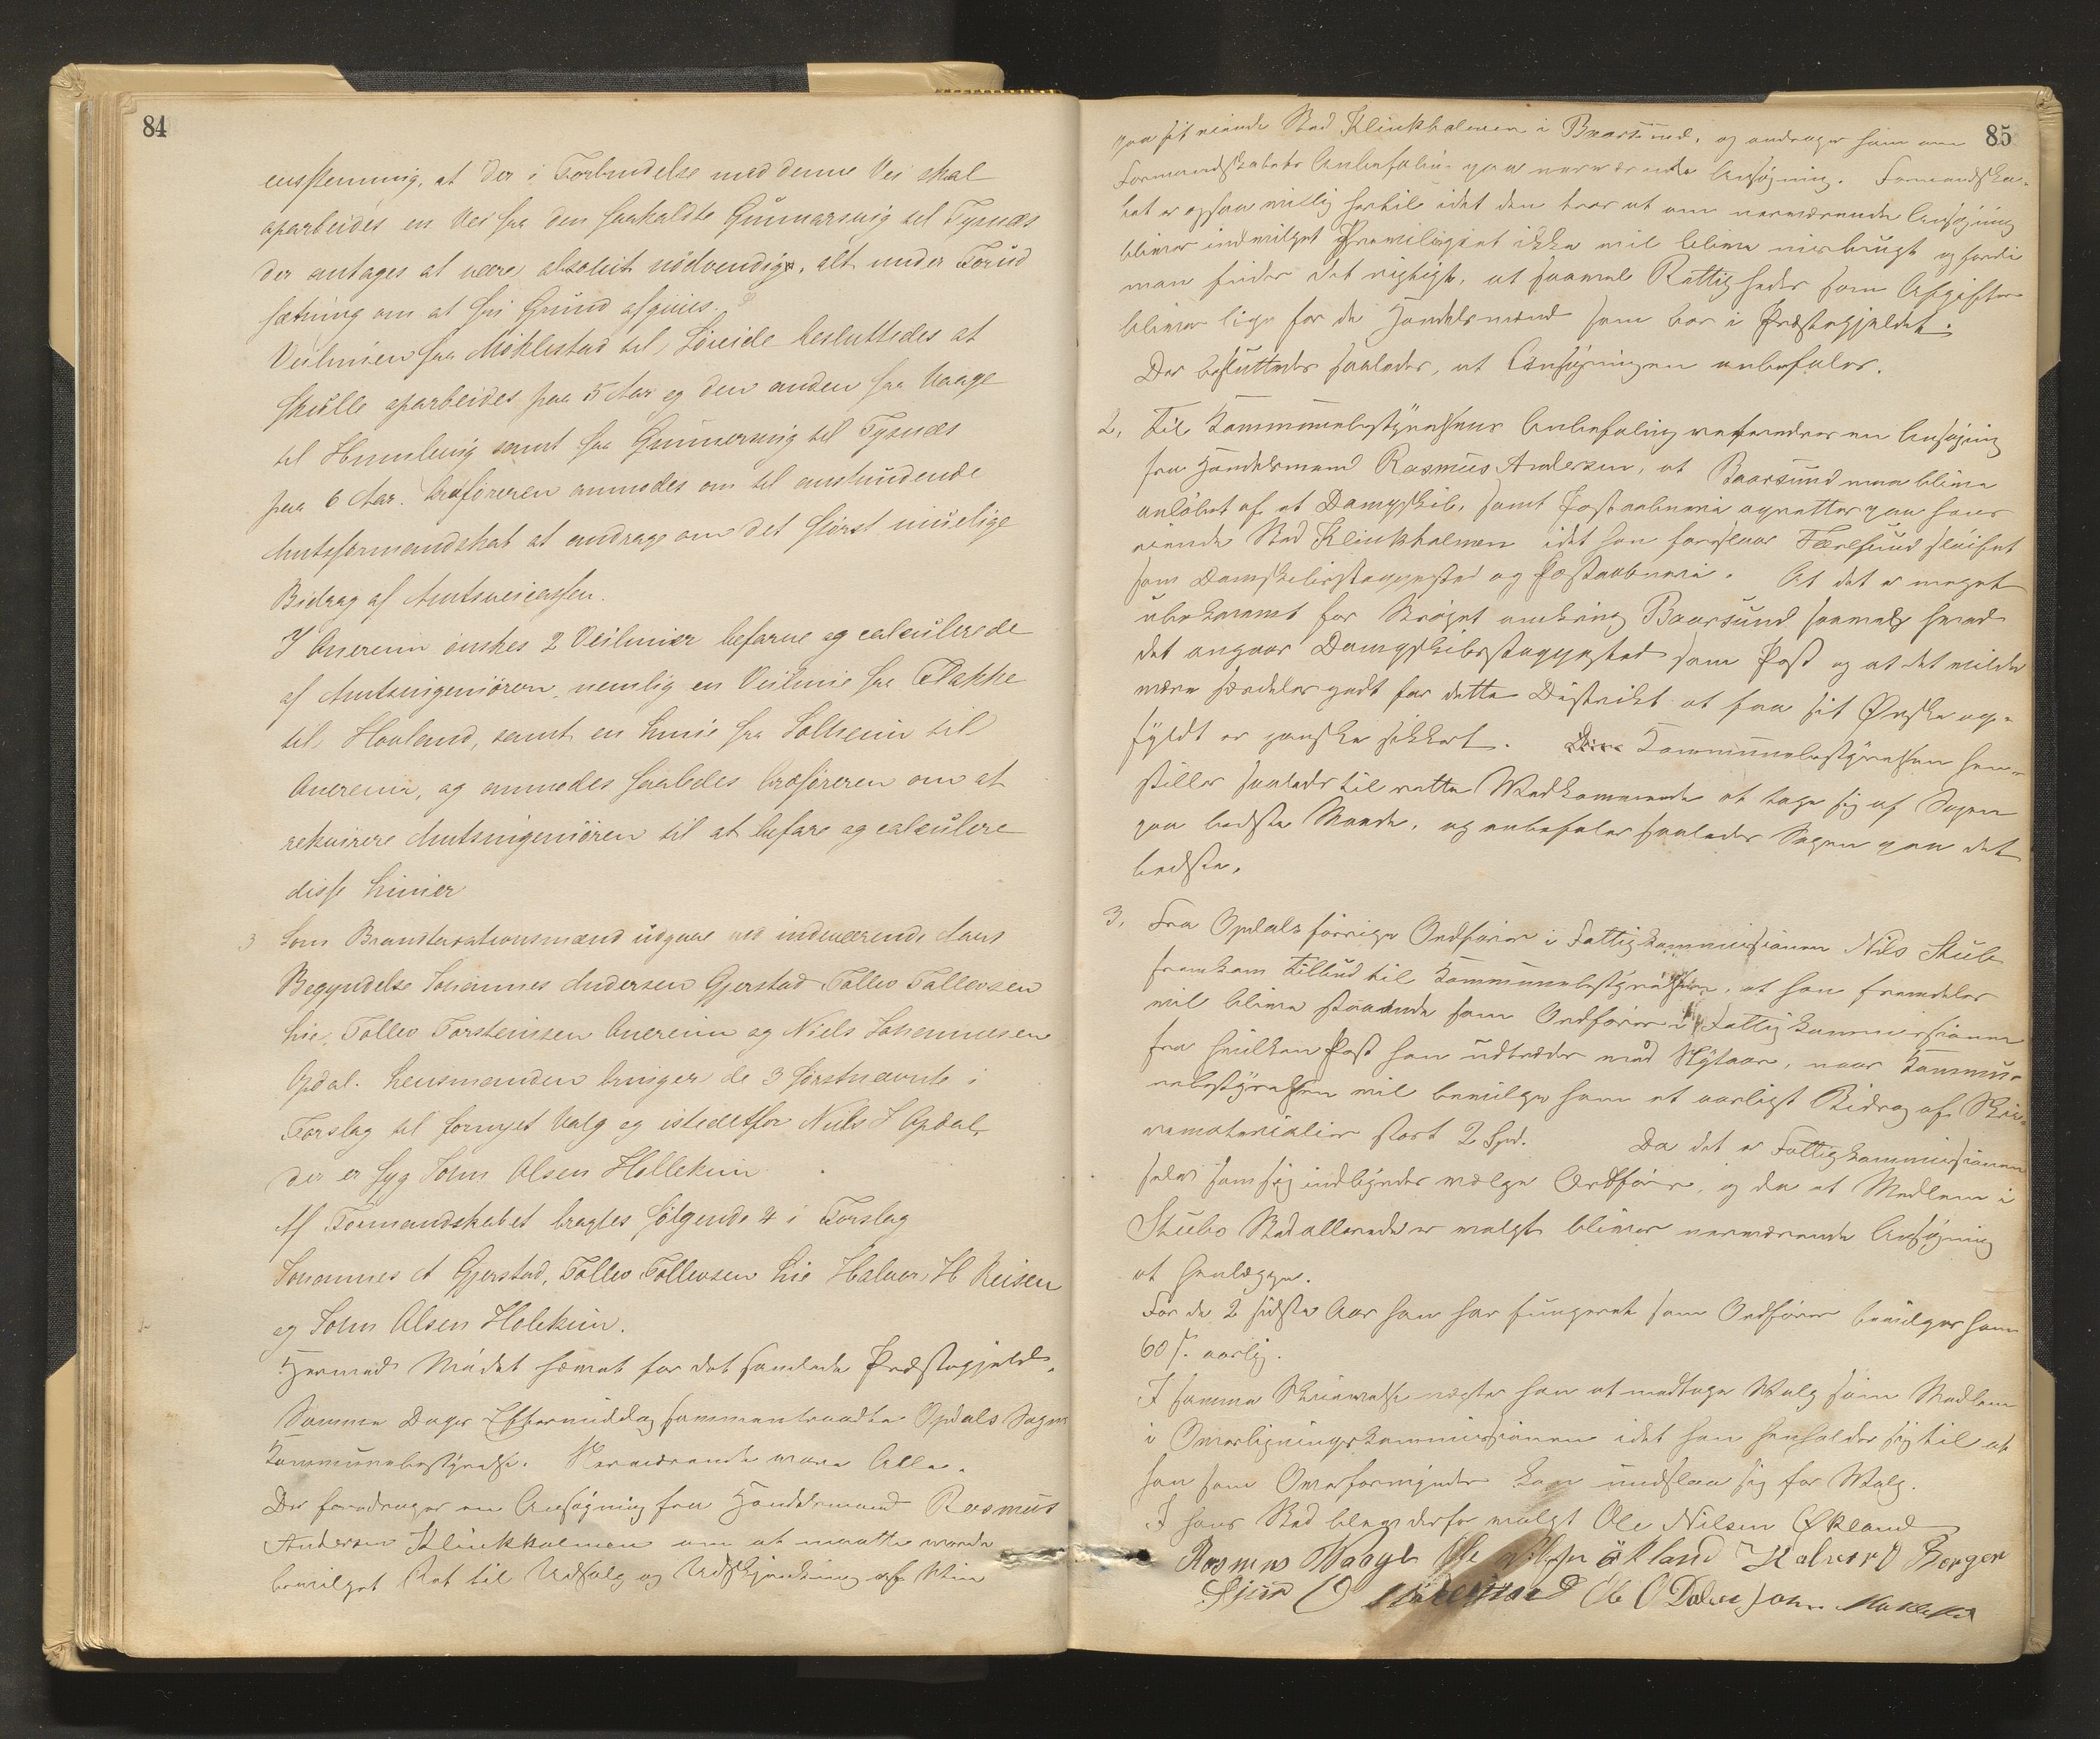 84
eensstemmig, at der i Forbindelse med denne Vei skal
oparbeides en Vei fra den saakaldte Gunnarsvig til Tysnæs
der antages at være absolut nödvendigt, alt under Forud
sætning om at fri Grund afgives.
Veilinien fra Möklestad til Söreide besluttedes at
skulle oparbeides paa 5 Aar og den anden fra Vaage
til Humlevig samt fra Gunnersvig til Tysnæs
paa 6 Aar. Ordföreren anmodes om til anstundende
Amtsformandskab at andrage om det störst muelige
Bidrag af Amtsveicassen.
I Onereim önskes 2 Veilinier befarne og calculerede
af Amtsingeniören, nemlig en Veilinie fra Flakke
til Hovland, samt en Linie fra Solheim til
Onereim, og anmodes saaledes Ordföreren om at
rekvirere Amtsingeniören til at befare og calculere
disse Linier
3 Som Brandtaxationsmænd udgaar ved indeværende Aars
Begyndelse Johannes Andersen Gjerstad Tollev Tollevsen
Lie, Tollev Torsteinsen Onereim og Niels Johannesen
Opdal. Lensmanden bringer de 3 förstnævnte i
Forslag til fornyet Valg og istedetfor Niels J Opdal,
der er syg John Olsen Hollekim
Af Formandskabet bragtes fölgende 4 i Forslag
Johannes A Gjerstad, Tollev Tollevsen Lie Halvor H Reisen
og John Olsen Holekim.
Hermed Mödet hævet for det samlede Præstegjeld.
Samme Dags Eftermiddag sammentraadte Opdals Sogns
Kommunebestyrelse. Nærværende vare Alle.
Der foredroges en Ansögning fra Handelsmand Rasmus
Andersen Klinkholmen om at maatte vorde
bevilget Ret til Udsalg og Udskjænkning af Viin
85
paa sit eiende Sted Klinkholmen i Baarsund, og andrager han om
Formandskabets Anbefaling paa nærværende Ansögning. Formandska-
bet er ogsaa villig hertil idet den tror at om nærværende Ansögning
bliver indvilget Privilegiet ikke vil blive misbrugt og fordi
man finder det rigtigt, at saavel Rettigheder som Afgifter
bliver lige for de Handelsmænd som bor i Præstegjeldet.
Der besluttedes saaledes, at Ansögningen anbefales.
2, Til Kommunebestyrelsens Anbefaling andrages en Ansögning
fra Handelsmand Rasmus Andersen, at Baarsund maa blive
anlöbet af et Dampskib, samt Postaabneri oprettes paa hans
eiende Sted Klinkholmen idet han foreslaar Færlesund slöifet
som Dampskibsstoppested og Postaabneri. At det er meget
ubekvemt for Ströget omkring Baarsund saavel hvad
det angaar Dampskibsstoppested som Post og at det vilde
være særdeles godt for dette Distrikt at faa sit Önske op-
fyldt er ganske sikkert. Kommunebestyrelsen hen-
stiller saaledes til rette Vedkommende at tage sig af Sagen
paa bedste Maade, og anbefales saaledes Sagen paa det
bedste.
3, Fra Opdals forrige Ordförer i Fattigkommissionen Nils Stube
fremkom Tilbud til Kommunebestyrelsen, at han fremdeles
vil blive staaende som Ordförer i Fattigkommissionen
fra hvilken Post han udtræder ved Nytaar, naar Kommu-
nebestyrelsen vil bevilge ham et aarligt Bidrag af Skri-
vematerialier stort 2 Spd. Da det er Fattigkommissionen
selv som sig imellem vælger Ordförer, og da et Medlem i
Stubes Sted allerede er valgt bliver nærværende Ansögning
at henlægge.
For de 2 sidste Aar han har fungeret som Ordförer bevilges ham
60 s. aarlig.
I samme Skrivelse nægter han at modtage Valg som Medlem
i Overligningskommissionen idet han henholder sig til at
han som Overformynder kan undslaa sig for Valg.
I hans Sted blev derfor valgt Ole Nilsen Økland
Rasmus Waage Ole Nilsen Økland Halvor O Borgen
Sjur O Ole O Dalen John Maklestad